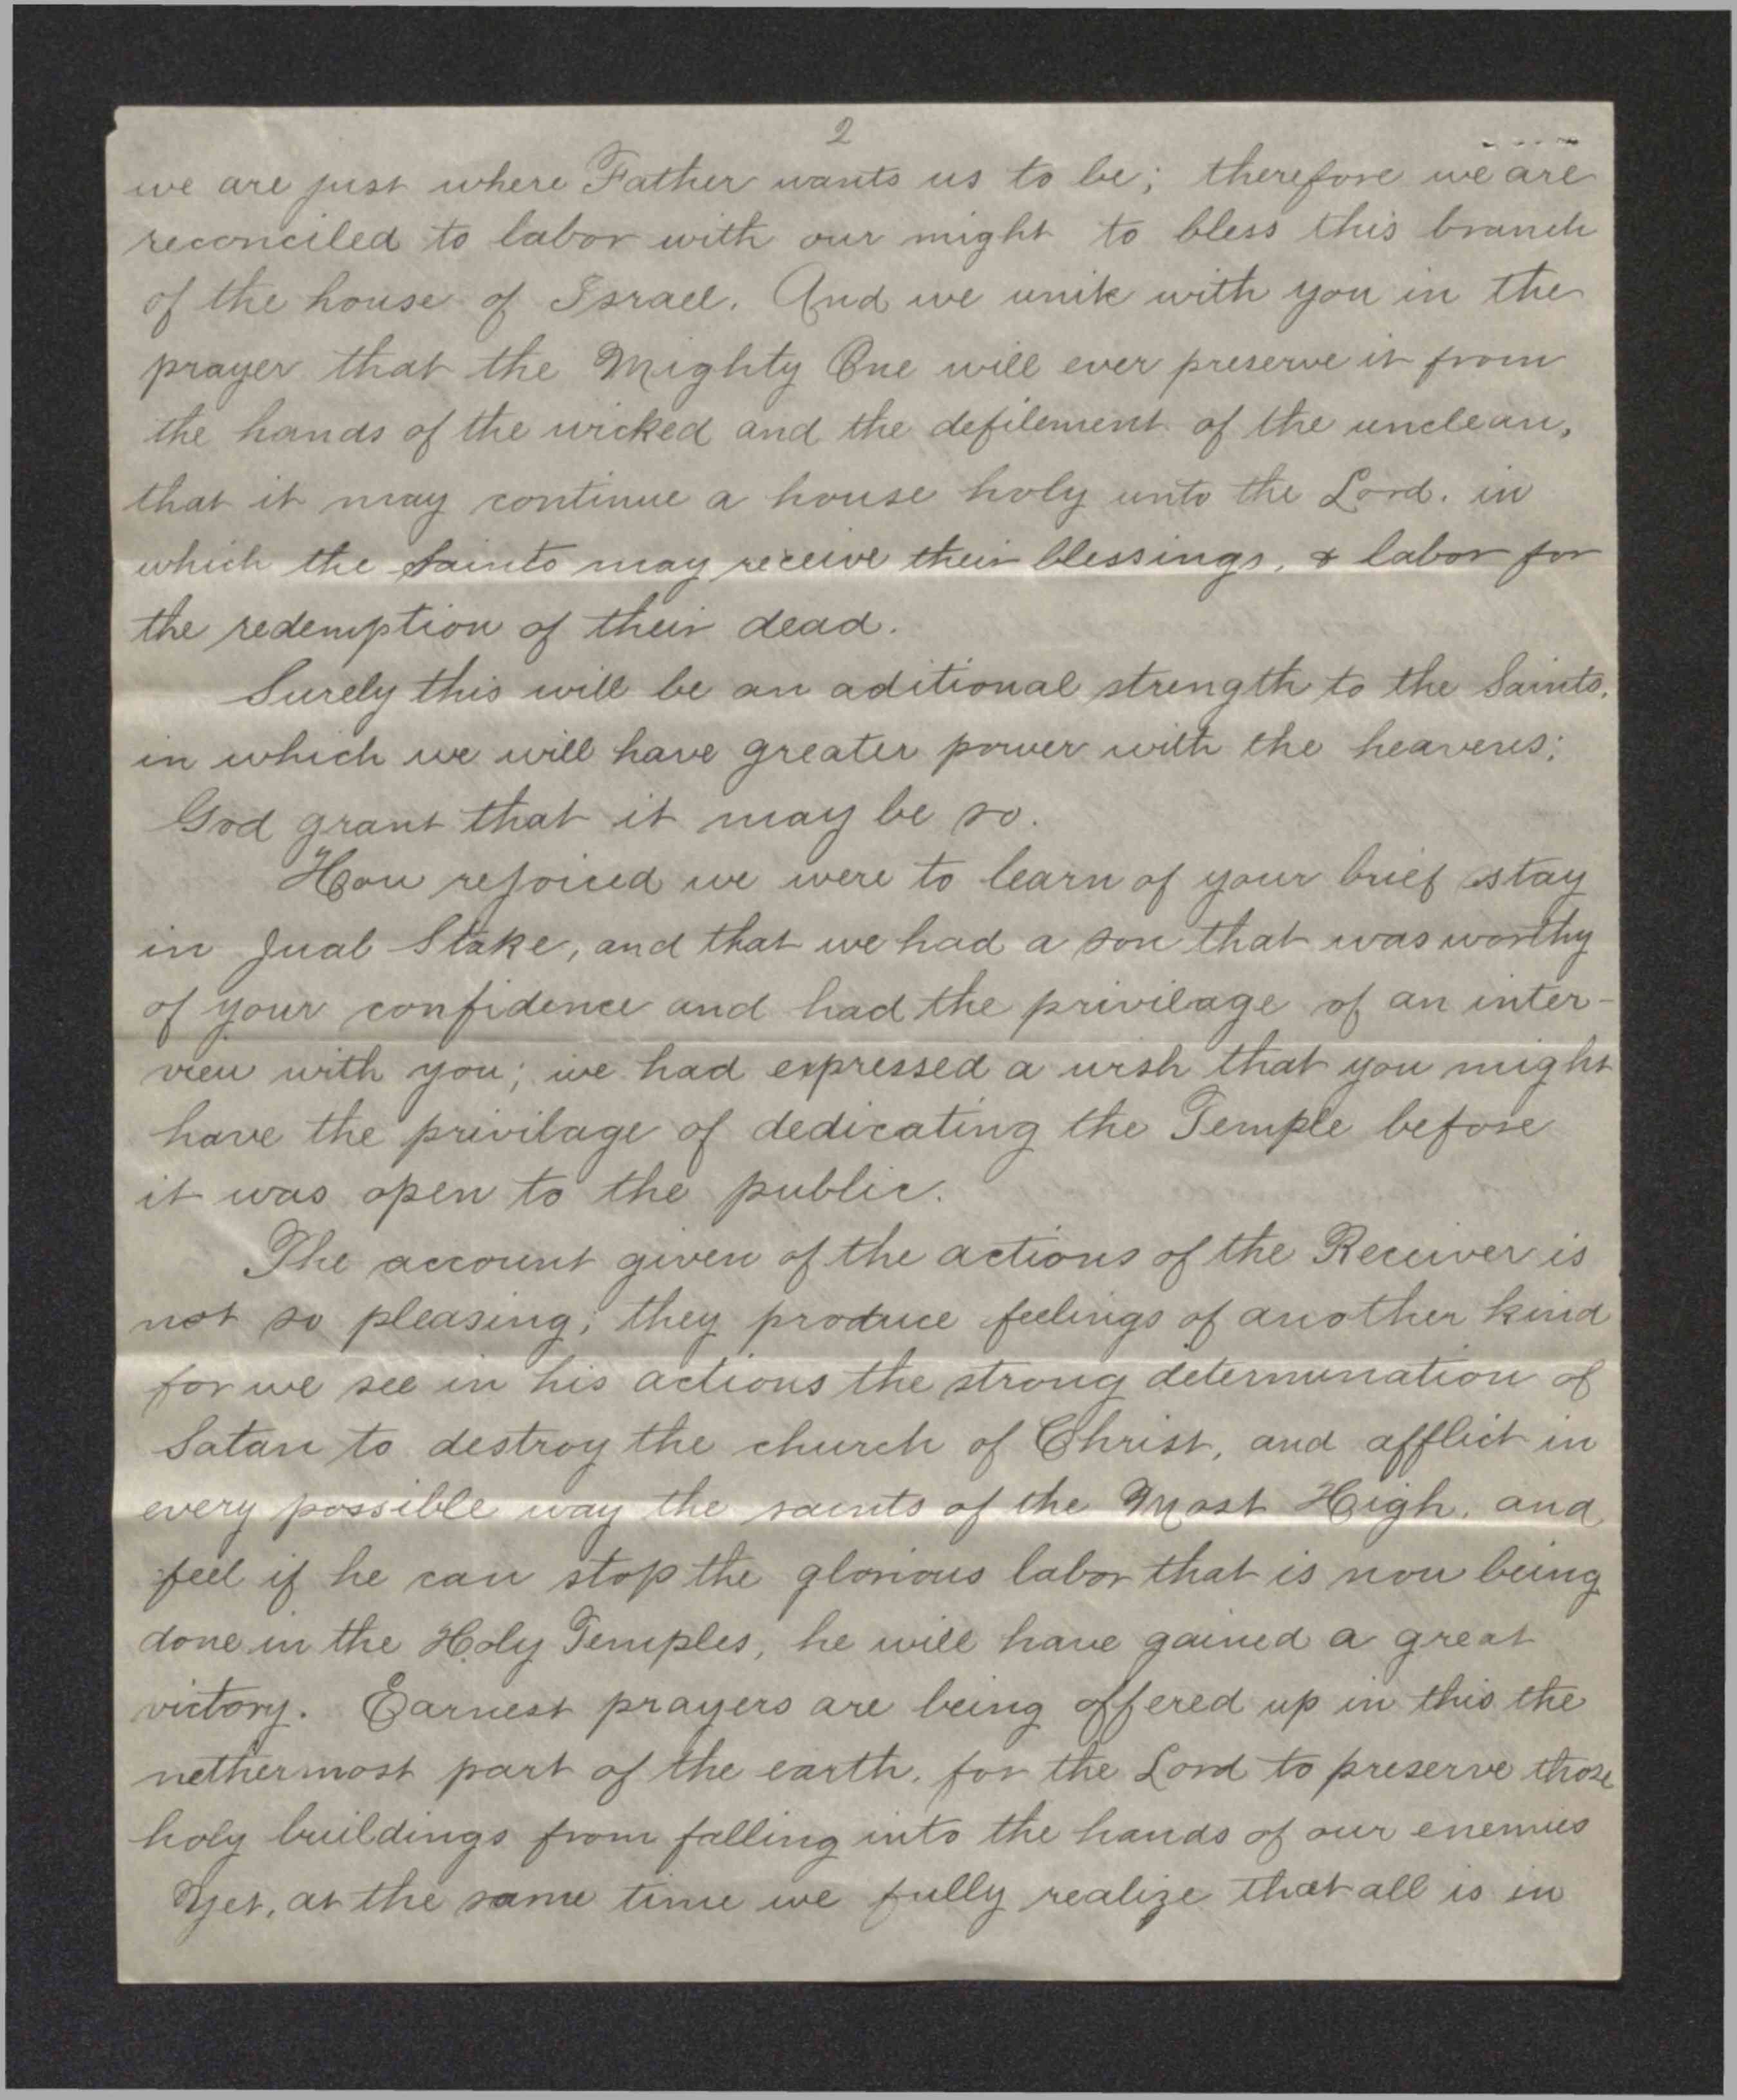 2
we are just where Father wants us to be; therefore we are
reconciled to labor with our might to bless this branch
of the house of Israel. And we unite with you in the
prayer that the Mighty One will ever preserve it from
the hands of the wicked and the defilement of the unclean,
that it may continue a house holy unto the Lord. in
which the Saints may receive their blessings, & labor for
the redemption of their dead.
Surely this will be an aditional strength to the Saints,
in which we will have greater power with the heavens;
God grant that it may be so.
How rejoiced we were to learn of your brief stay
in Juab Stake, and that we had a son that was worthy
of your confidence and had the privilage of an inter-
view with you; we had expressed a wish that you might
have the privilage of dedicating the Temple before
it was open to the public.
The account given of the actions of the Receiver is
not so pleasing; they produce feelings of another kind
for we see in his actions the strong determination of
Satan to destroy the church of Christ, and afflict in
every possible way the saints of the Most High. and
feel if he can stop the glorious labor that is now being
done in the Holy Temples, he will have gained a great
victory. Earnest prayers are being offered up in this the
nethermost part of the earth, for the Lord to preserve those
holy buildings from falling into the hands of our enemies
Yet, at the same time we fully realize that all is in